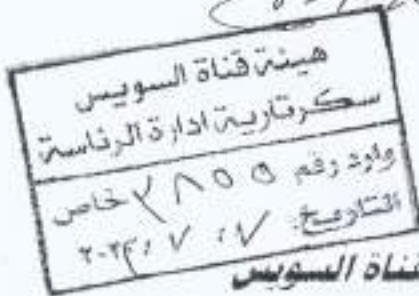 هيئة قناة السويس
سكرتارية ادارة الرئاسة
وارد رقم ٣٨٥٥ خاص
التاريخ: ٧ / ٧ / ٢٠٢٤
قناة السويس